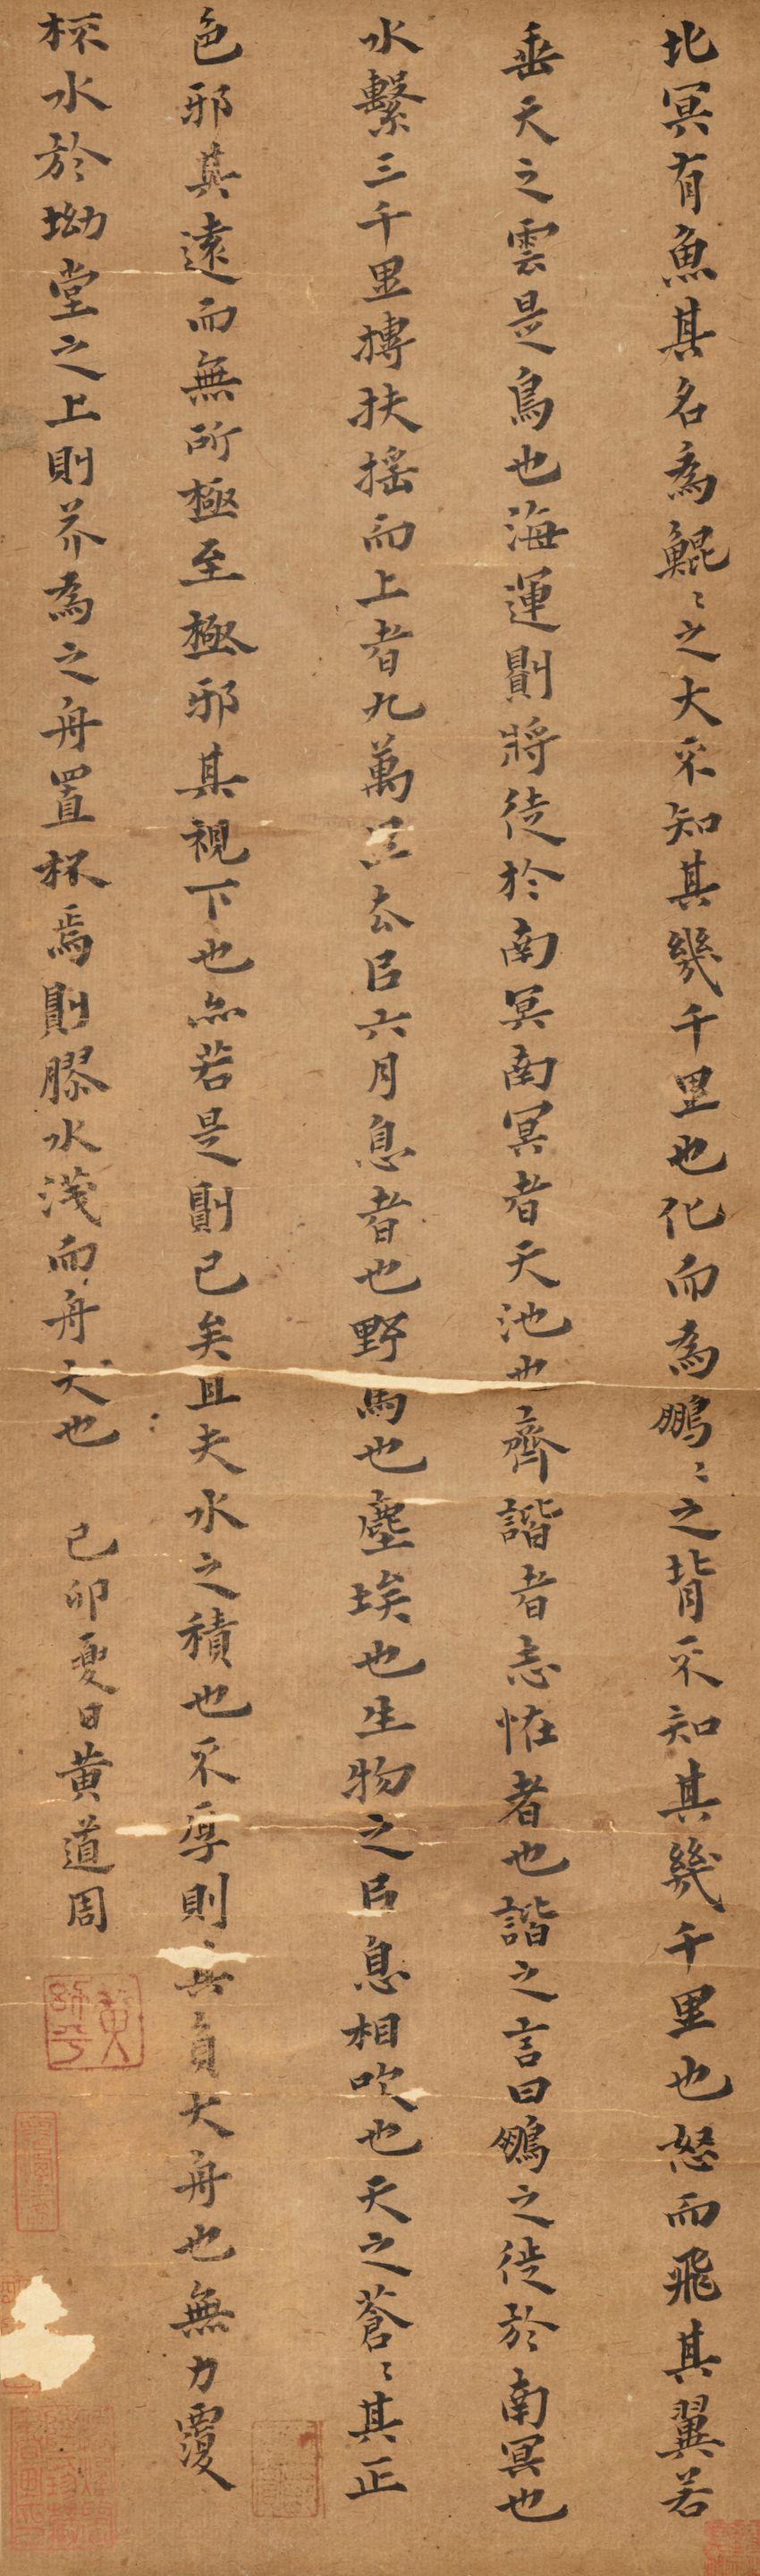 北冥有魚其名為鯤〻之大不知其幾千里也化而為鵬〻之背不知其幾千里也怒而飛其翼若
垂天之雲是鳥也海運則將徙於南冥南冥者天池也齊諧者志恠者也諧之言曰鵬之徙於南冥也
水擊三千里摶扶搖而上者九萬里去㠯六月息者也野馬也塵埃也生物之㠯息相吹也天之蒼〻其正
色邪其遠而無所極至極邪其視下也亦若是則已矣且夫水之積也不厚則其負大舟也無力覆
杯水於坳堂之上則芥為之舟置杯焉則膠水淺而舟大也 己卯夏日黃道周